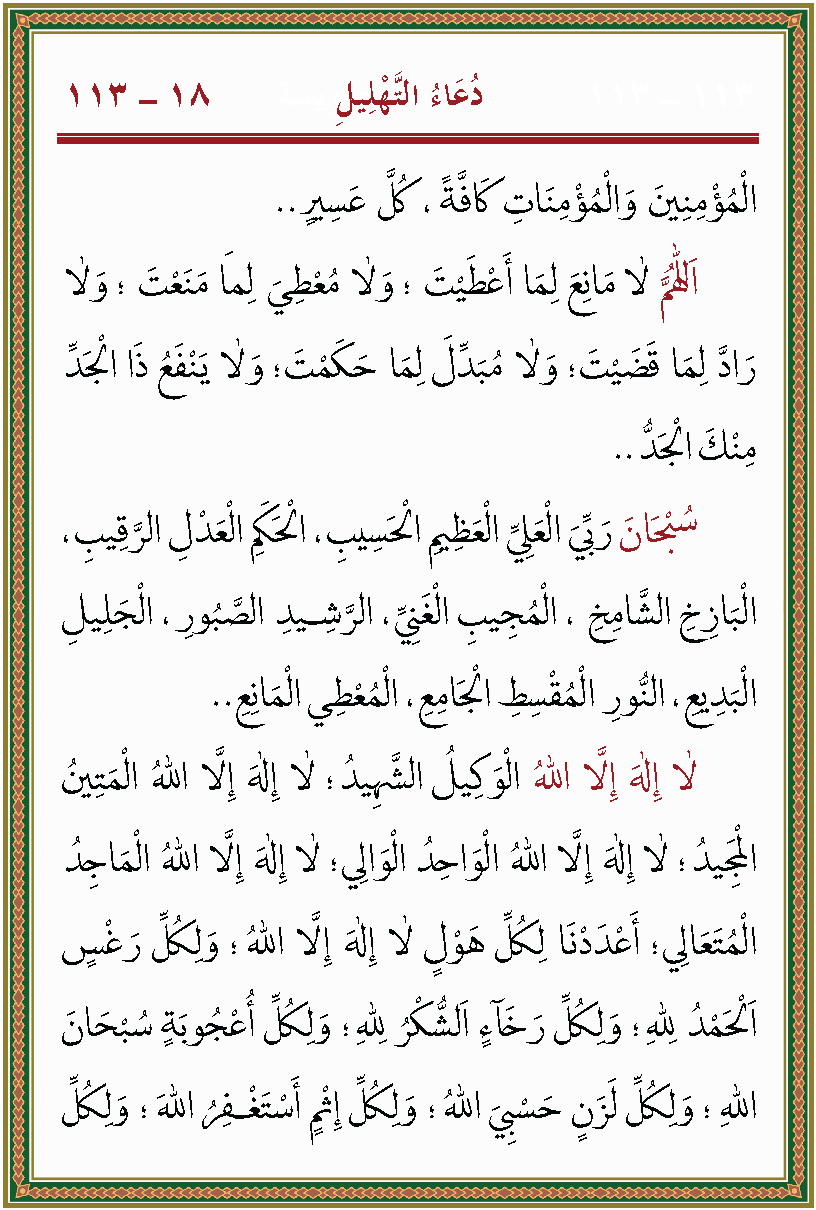 دُعَاءُ التَّهْلِيلِ ١٨ – ١١٣
الْمُؤْمِنِينَ وَالْمُؤْمِنَاتِ كَافَّةً ، كُلَّ عَسِيرٍ ..
اَللّٰهُمَّ لاٰ مَانِعَ لِمَا أَعْطَيْتَ ؛ وَلاٰ مُعْطِيَ لِمَا مَنَعْتَ ؛ وَلاٰ
رَادَّ لِمَا قَضَيْتَ ؛ وَلاٰ مُبَدِّلَ لِمَا حَكَمْتَ ؛ وَلاٰ يَنْفَعُ ذَا الْجَدِّ
مِنْكَ الْجَدُّ ..
سُبْحَانَ رَبِّيَ الْعَلِيِّ الْعَظِيمِ الْحَسِيبِ ، الْحَكَمِ الْعَدْلِ الرَّقِيبِ ،
الْبَازِخِ الشَّامِخِ ، الْمُجِيبِ الْغَنِيِّ ، الرَّشِــيدِ الصَّبُورِ ، الْجَلِيلِ
الْبَدِيعِ ، النُّورِ الْمُقْسِطِ الْجَامِعِ ، الْمُعْطِي الْمَانِعِ ..
لاٰ إِلٰهَ إِلَّا اللهُ الْوَكِيلُ الشَّهِيدُ ؛ لاٰ إِلٰهَ إِلَّا اللهُ الْمَتِينُ
الْمَجِيدُ ؛ لاٰ إِلٰهَ إِلَّا اللهُ الْوَاحِدُ الْوَالِي ؛ لاٰ إِلٰهَ إِلَّا اللهُ الْمَاجِدُ
الْمُتَعَالِي ؛ أَعْدَدْنَا لِكُلِّ هَوْلٍ لاٰ إِلٰهَ إِلَّا اللهُ ؛ وَلِكُلِّ رَغْسٍ
اَلْحَمْدُ لِلهِ ؛ وَلِكُلِّ رَخَآءٍ اَلشُّكْرُ لِلهِ ؛ وَلِكُلِّ أُعْجُوبَةٍ سُبْحَانَ
اللهِ ؛ وَلِكُلِّ لَزَنٍ حَسْبِيَ اللهُ ؛ وَلِكُلِّ إِثْمٍ أَسْتَغْــفِرُ اللهَ ؛ وَلِكُلِّ